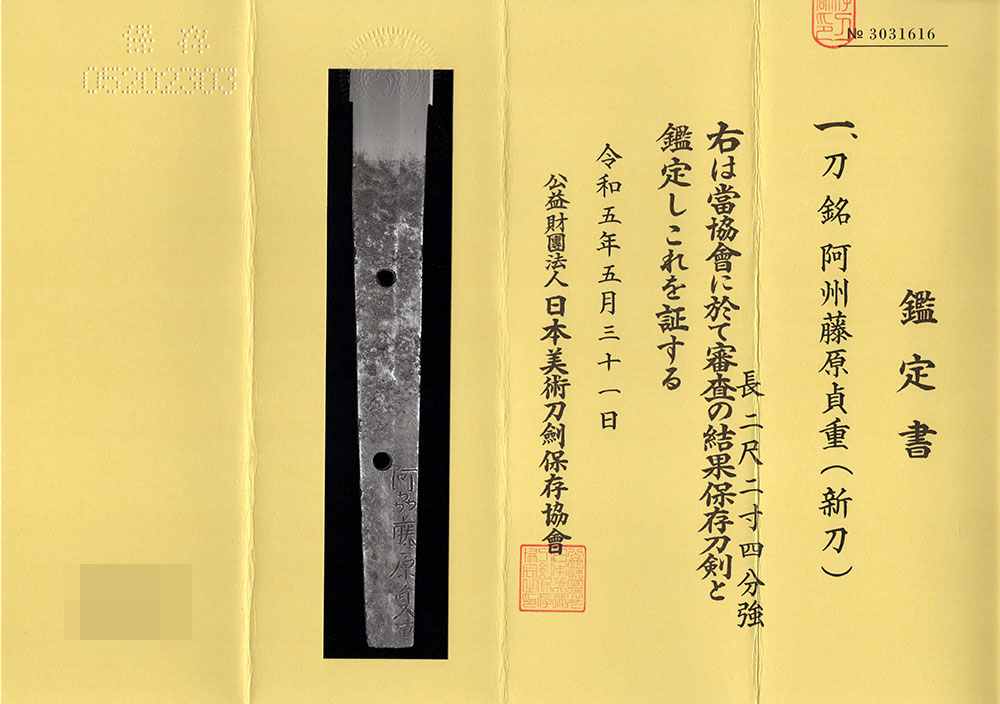 № 3031616
鑑定書
一、刀 銘 阿州藤原貞重(新刀)
長二尺二寸四分強
右は當協會に於て審査の結果保存刀剣と
鑑定しこれを証する
令和五年五月三十一日
公益財團法人日本美術刀劍保存協會
保存
05202303
阿州藤原貞重